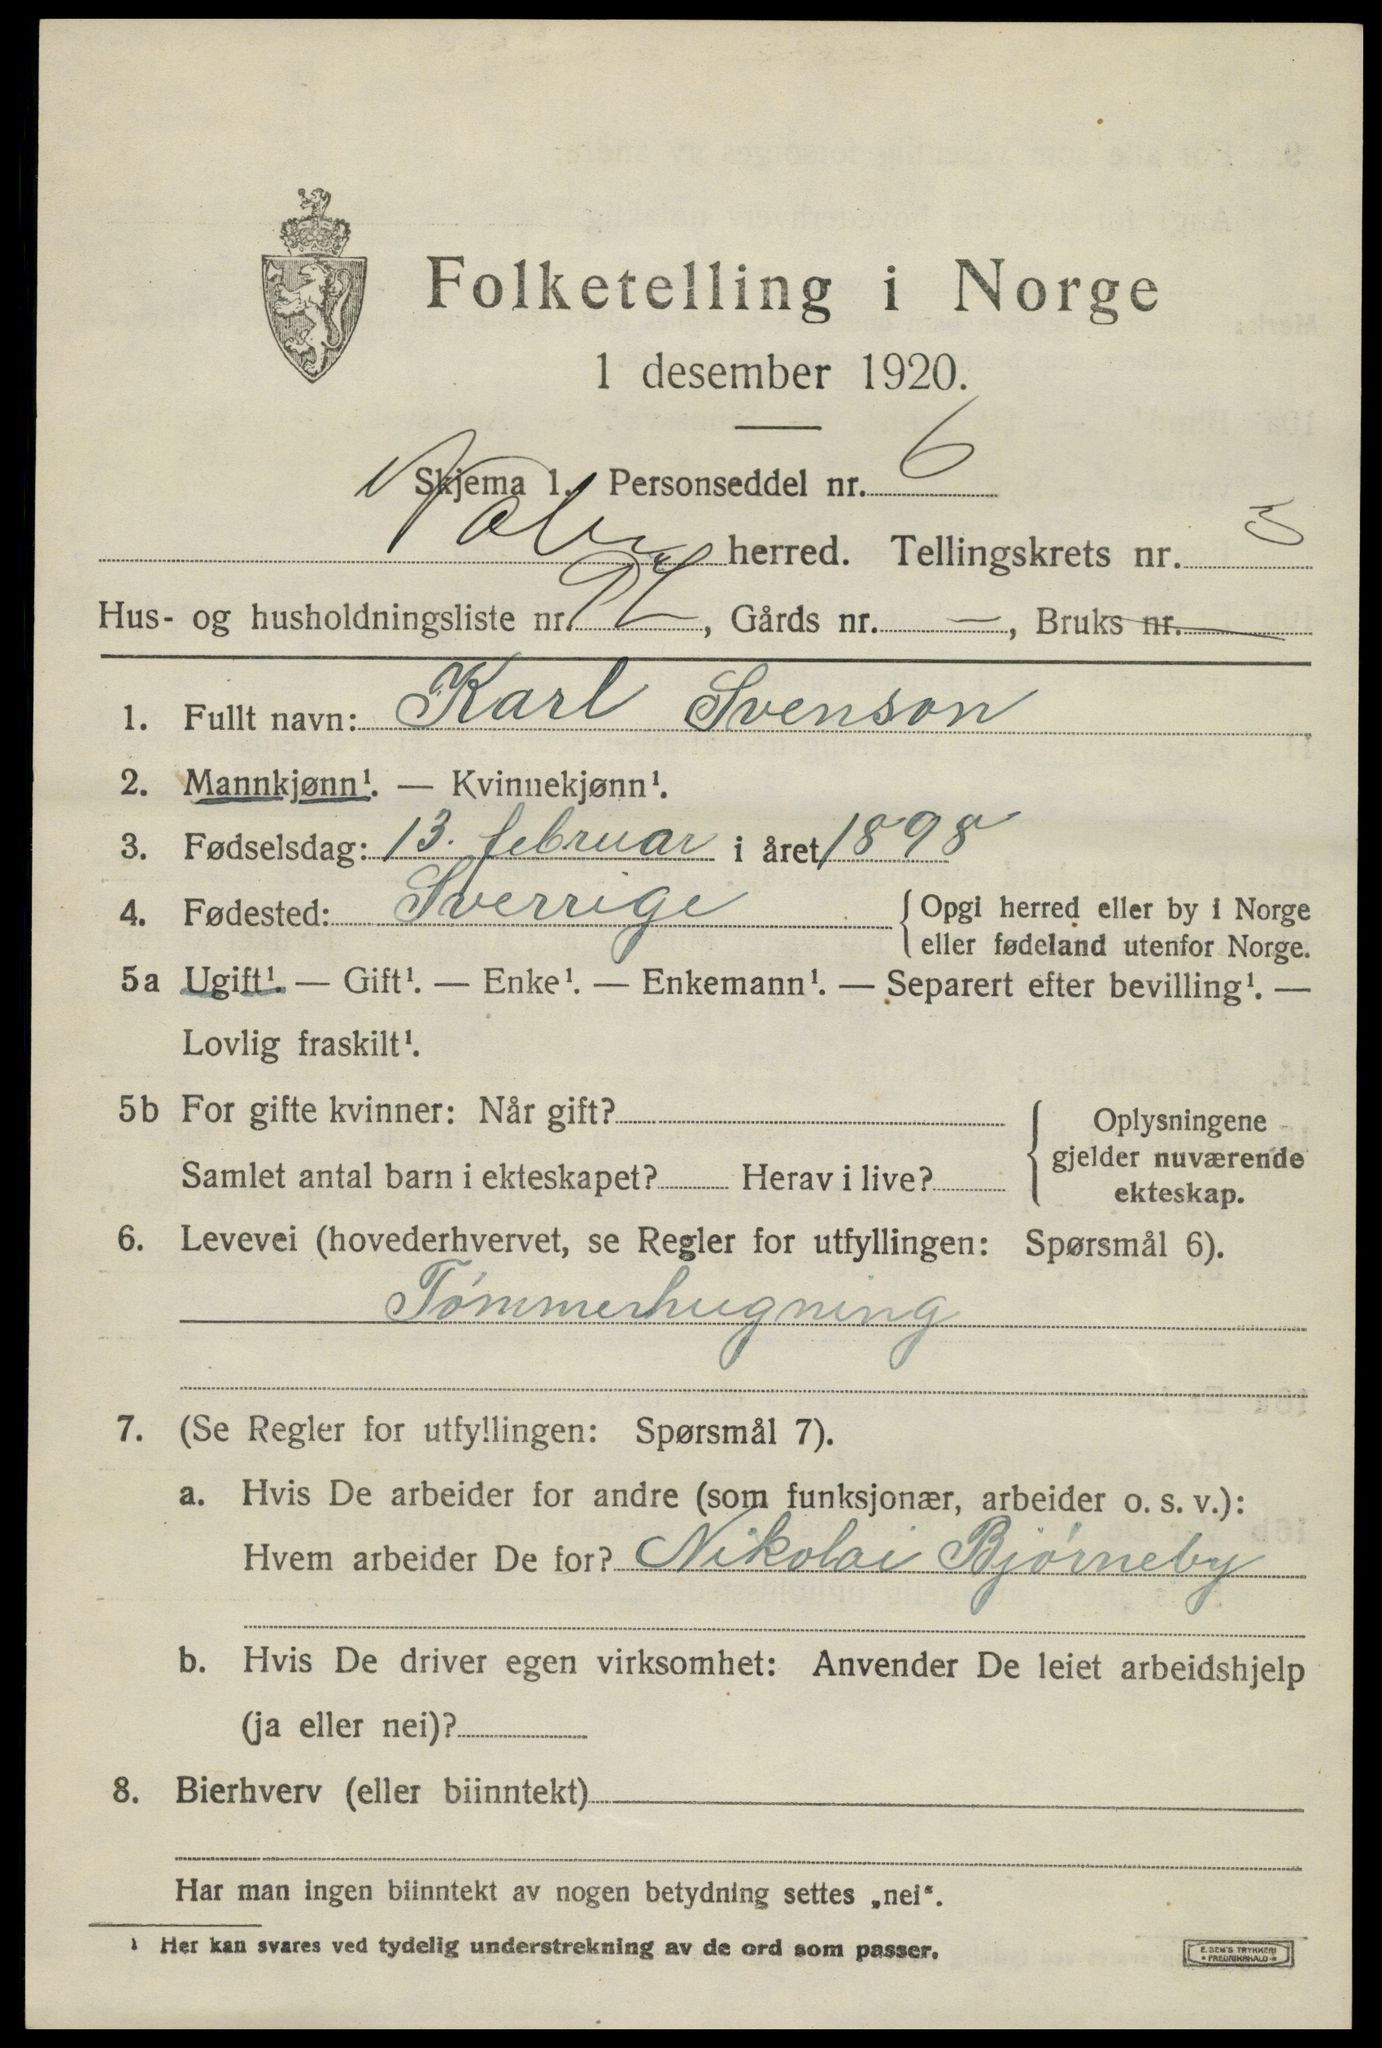 Folketelling i Norge
1 desember 1920.
Skjema 1. Personseddel nr. 6
Våler herred. Tellingskrets nr. 3
Hus- og husholdningsliste nr. , Gårds nr. —, Bruks nr. —
1. Fullt navn: Karl Svenson
2. Mannkjønn¹. — Kvinnekjønn¹.
3. Fødselsdag: 13. februar i året 1898
4. Fødested: Sverrige { Opgi herred eller by i Norge
eller fødeland utenfor Norge.
5a Ugift¹. — Gift¹. — Enke¹. — Enkemann¹. — Separert efter bevilling¹. —
Lovlig fraskilt¹.
5b For gifte kvinner: Når gift?
Samlet antal barn i ekteskapet? Herav i live?
{ Oplysningene
gjelder nuværende
ekteskap.
6. Levevei (hovederhvervet, se Regler for utfyllingen: Spørsmål 6).
Tømmerhugning
7. (Se Regler for utfyllingen: Spørsmål 7).
a. Hvis De arbeider for andre (som funksjonær, arbeider o. s. v.):
Hvem arbeider De for? Nikolai Bjørneby
b. Hvis De driver egen virksomhet: Anvender De leiet arbeidshjelp
(ja eller nei)?
8. Bierhverv (eller biinntekt)
Har man ingen biinntekt av nogen betydning settes „nei“.
¹ Her kan svares ved tydelig understrekning av de ord som passer.
E. SEM'S TRYKKERI
FREDRIKSHALD